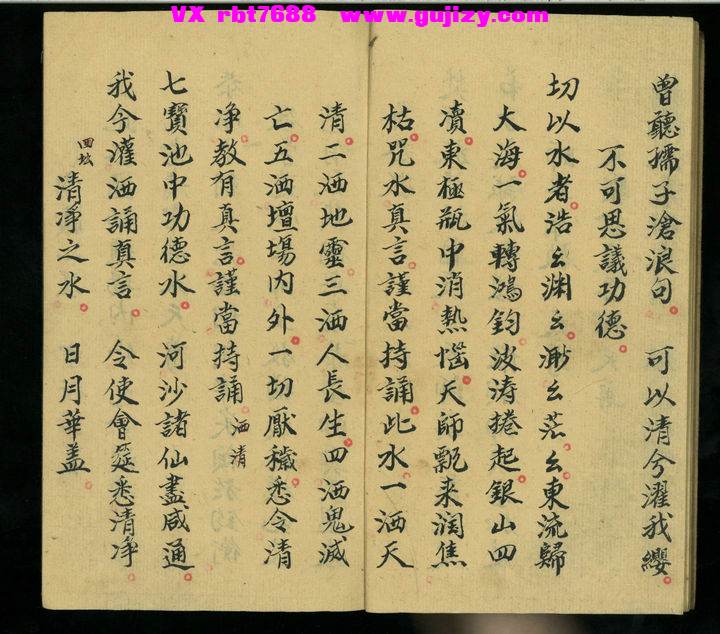 VX rbt7688 www.gujizy.com
曾聽孺子滄浪句 可以清兮濯我纓
不可思議功德
切以水者浩幺渊幺渺幺茫幺東流歸
大海一氣轉鴻鈞波涛捲起銀山四
瀆東極瓶中消熱惱天師瓢来润焦
枯咒水真言謹當持誦此水一洒天
清二洒地靈三洒人長生四洒鬼滅
亡五洒壇場内外一切厭穢悉令清
净教有真言謹當持誦 洒清
七寳池中功德水 河沙諸仙盡咸通
我今灌洒誦真言 令使會筵悉清净
田城 清净之水 日月華盖